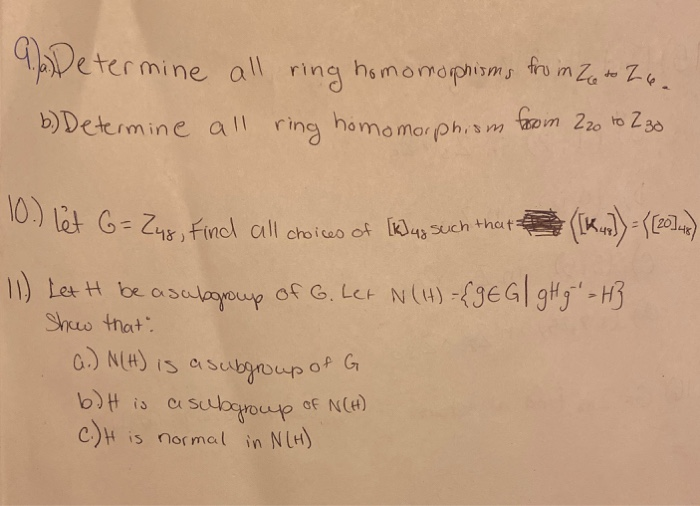 9.) a.) Determine all ring homomorphisms from Z₆ to Z₆.
b.) Determine all ring homomorphism from Z20 to Z30
10.) Let G = Z48, Find all choices of [K]48 such that ⟨[K48]⟩ = ⟨[20]48⟩
11.) Let H be a subgroup of G. Let N(H) = {g∈G | gHg⁻¹ = H}
Show that:
a.) N(H) is a subgroup of G
b.) H is a subgroup of N(H)
c.) H is normal in N(H)